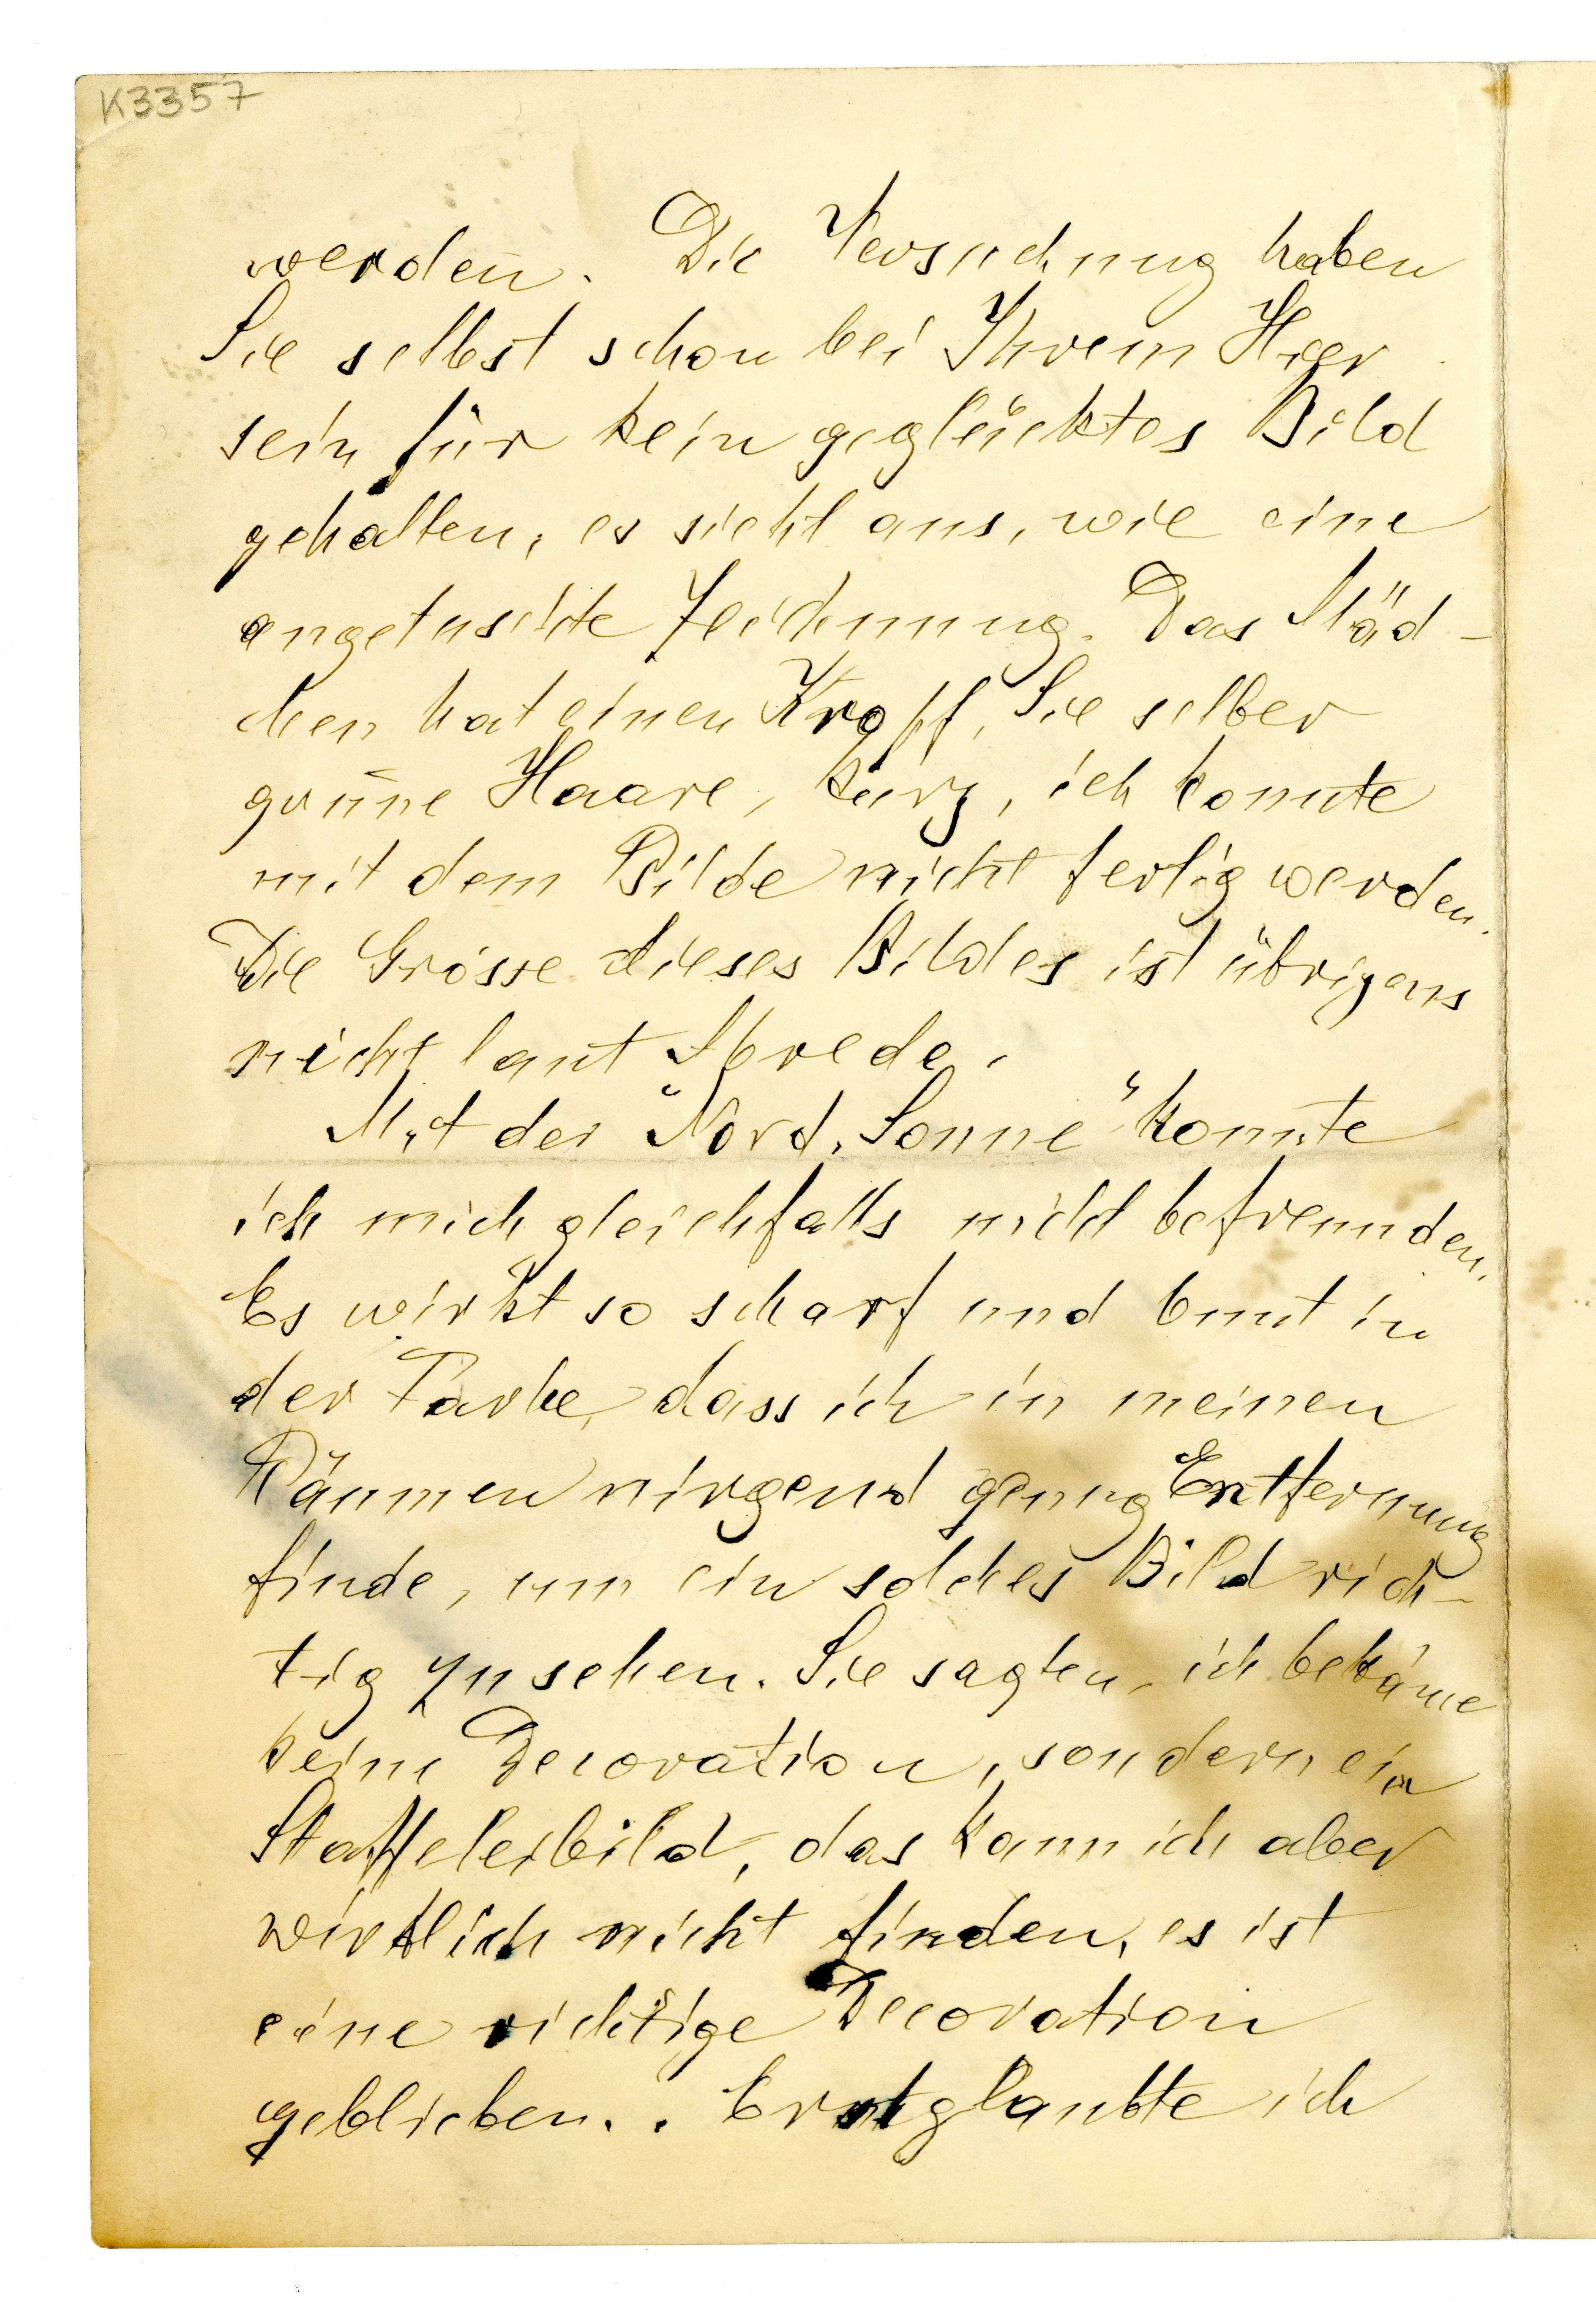 K3357
werden. Die Versuchung haben
Sie selbst schon bei Ihrem Hier
sein für kein geglücktes Bild
gehalten, es sieht aus, wie eine
angetuschte Zeichnung. Das Mäd-
chen hat einen Kropf, Sie selber
grüne Haare, kurz, ich konnte
mit dem Bilde nicht fertig werden.
Die Grösse dieses Bildes ist übrigens
nicht laut Abrede.
Mit der "Nord. Sonne" konnte
ich mich gleichfalls nicht befreunden.
Es wirkt so scharf und bunt in
der Farbe, dass ich in meinen
Räumen nirgend genug Entfernung
finde, um ein solches Bild rich-
tig zu sehen. Sie sagten, ich bekäme
keine Decoration, sondern ein
Staffeleibild, das kann ich aber
wirklich nicht finden, es ist
eine richtige Decoration
geblieben.. Erst glaubte ich